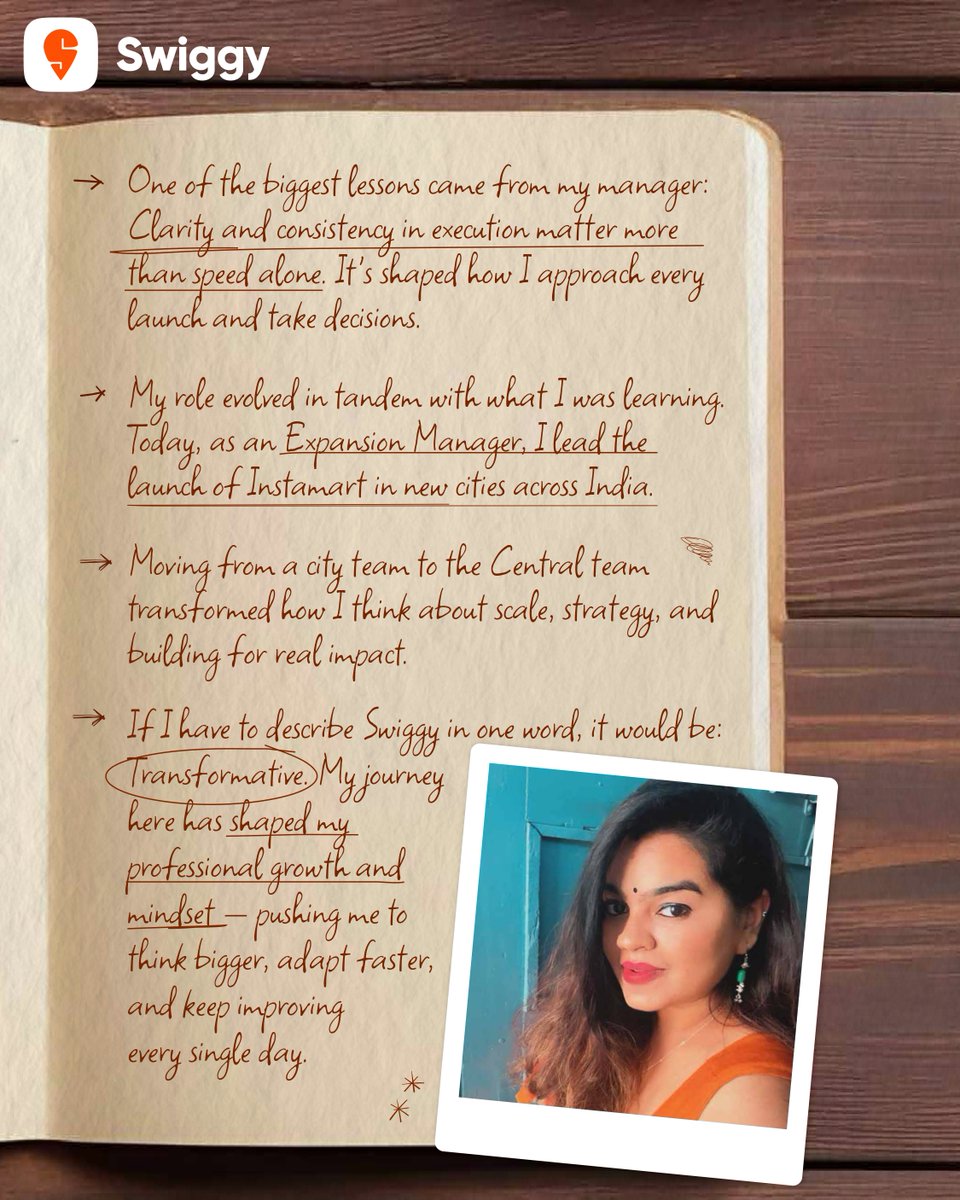 Swiggy
→ One of the biggest lessons came from my manager:
Clarity and consistency in execution matter more
than speed alone. It's shaped how I approach every
launch and take decisions.
→ My role evolved in tandem with what I was learning.
Today, as an Expansion Manager, I lead the
launch of Instamart in new cities across India.
→ Moving from a city team to the Central team
transformed how I think about scale, strategy, and
building for real impact.
→ If I have to describe Swiggy in one word, it would be:
Transformative. My journey
here has shaped my
professional growth and
mindset — pushing me to
think bigger, adapt faster,
and keep improving
every single day.